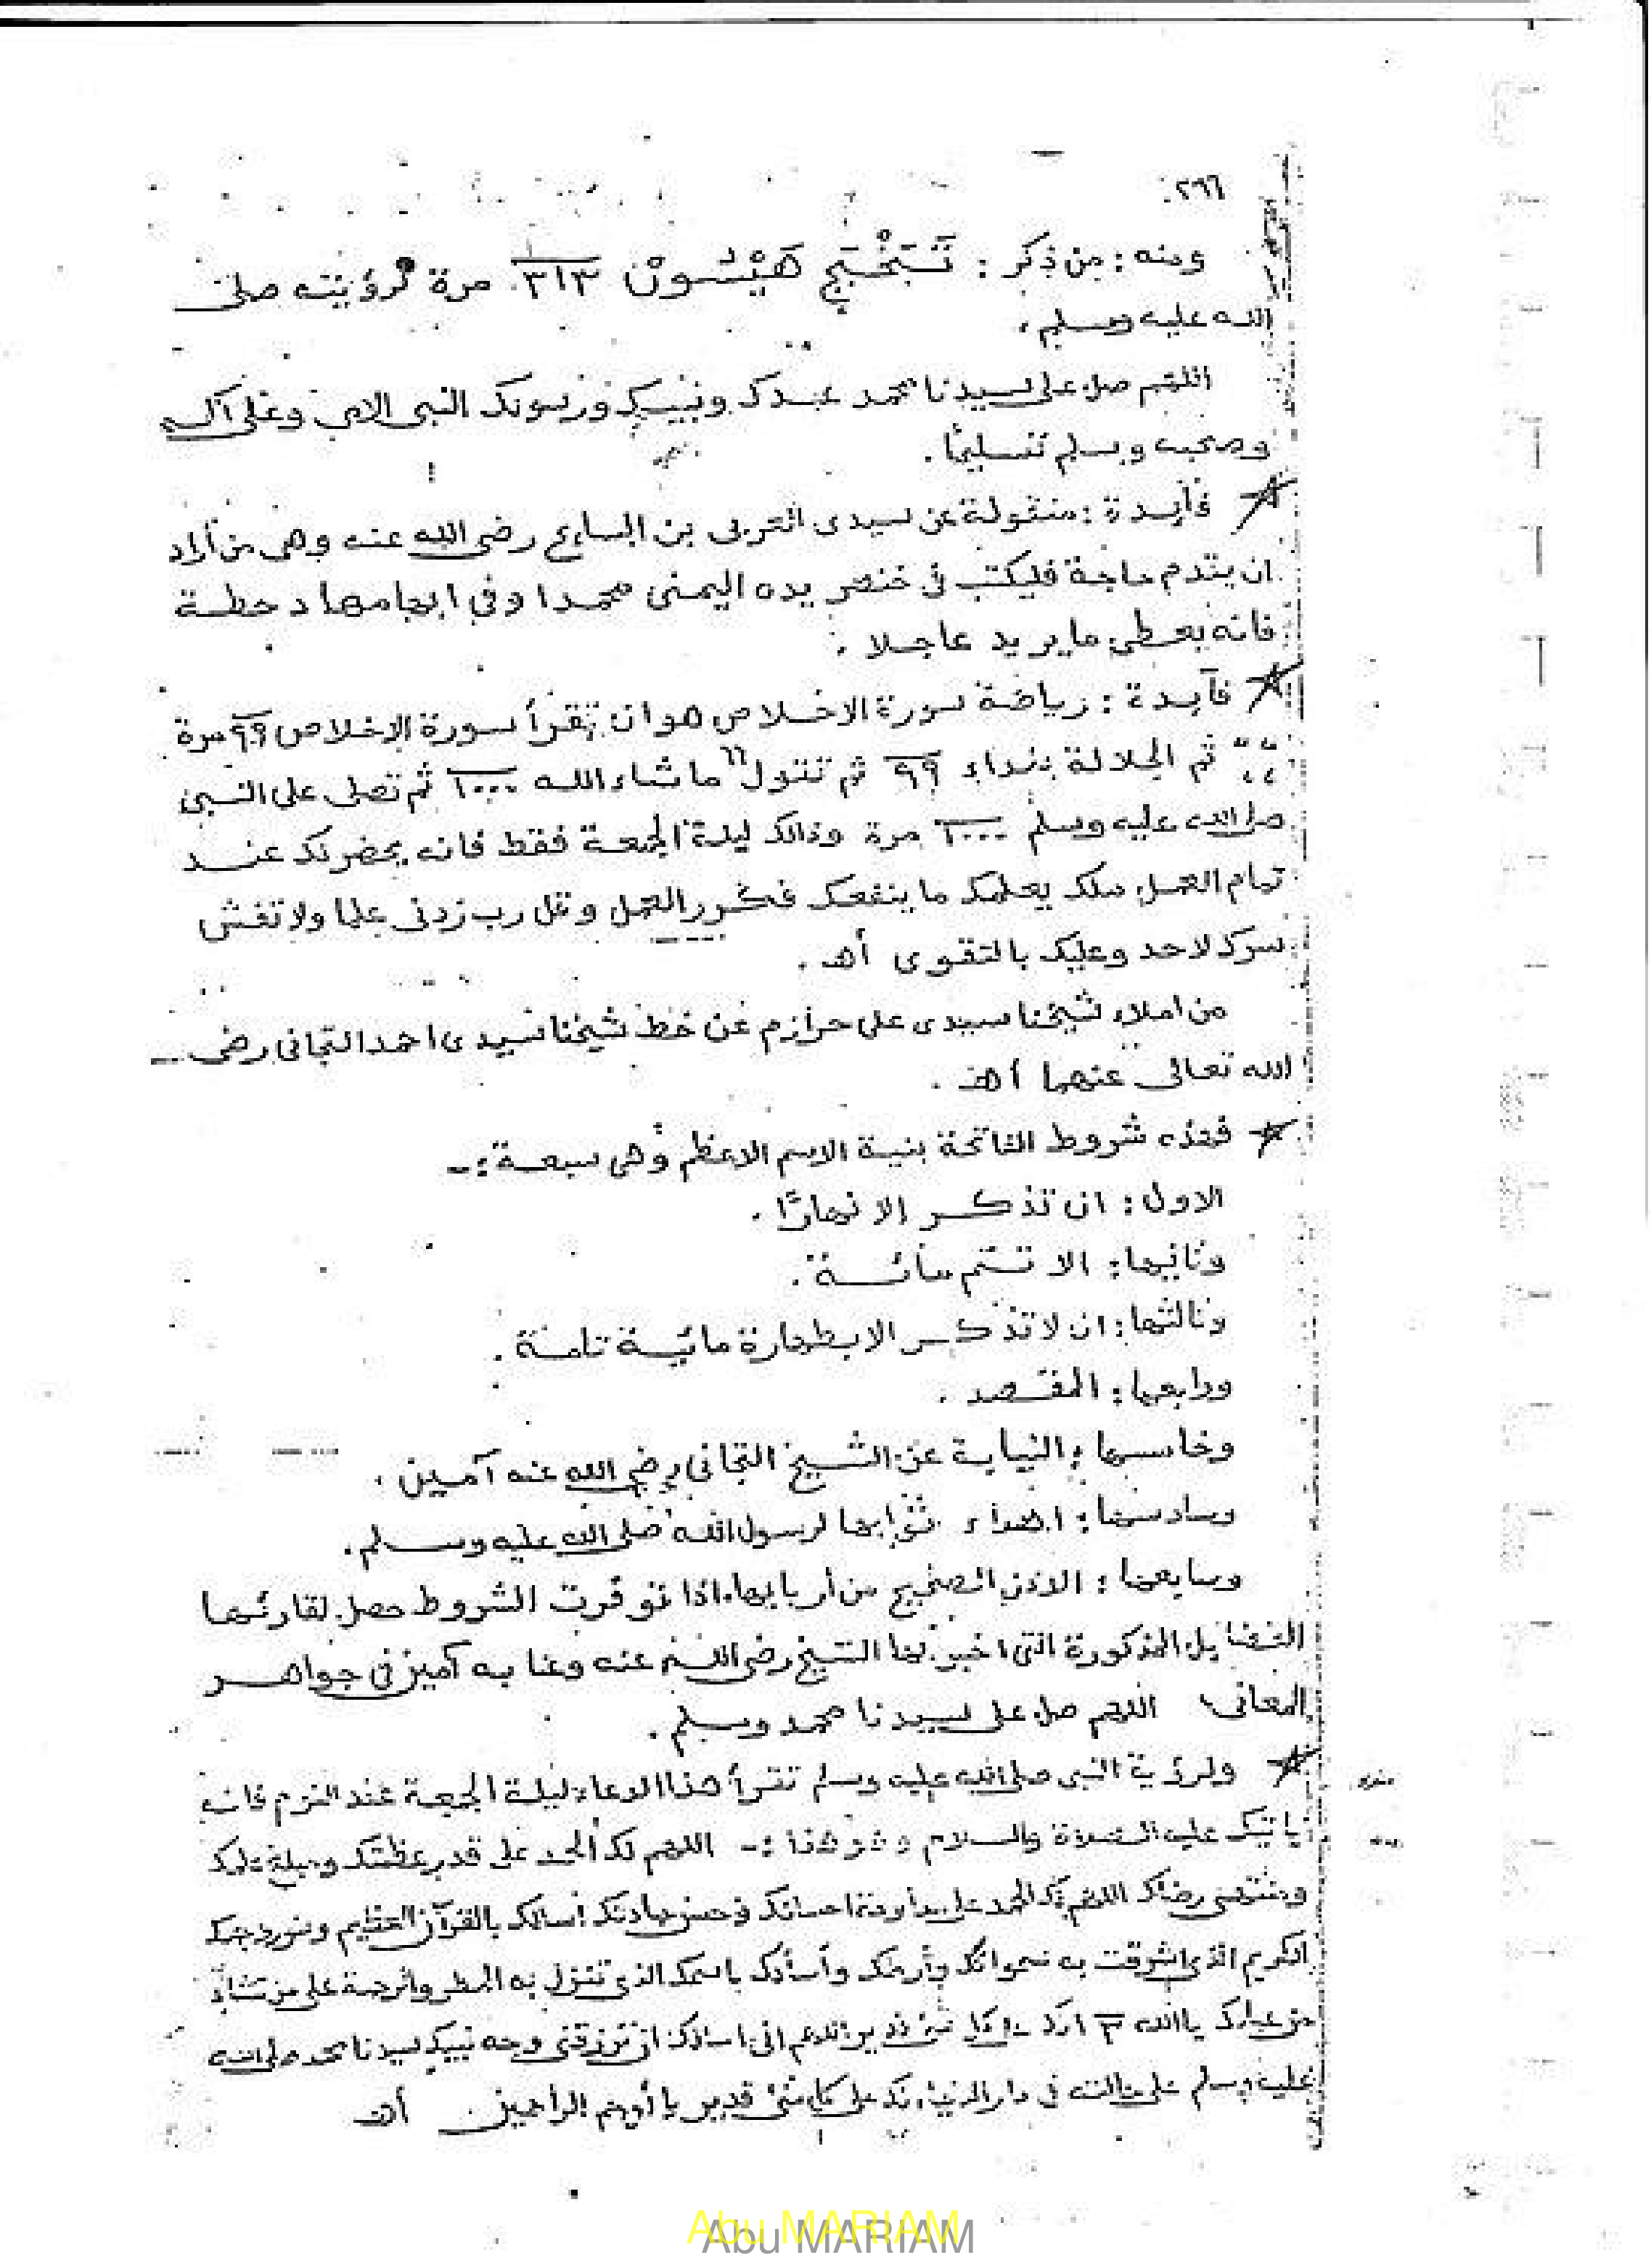 ٢٦٦
ومنه : من ذكر : هَيْشُونْ ٣١٣ مرة لرؤيته صلى
الله عليه وسلم .
اللهم صل على سيدنا محمد عبدك ونبيك ورسولك النبى الامى وعلى آله
وصحبه وسلم تسليمًا .
فآيدة : منقولة عن سيدى العربى بن السايح رضى الله عنه وهى من أراد
ان يقدم حاجة فليكتب فى خنصر يده اليمنى محمدا وفى ابهامها
فانه يعطى ما يريد عاجلا .
فآيدة : رياضة سورة الاخلاص هو ان تقرأ سورة الاخلاص ٩٩ مرة
ثم الجلالة بنداء ٩٩ ثم تقول ٦٦ ما شاء الله ١٠٠٠ ثم تصلى على النبى
صلى الله عليه وسلم ١٠٠٠ مرة وذالك ليلة الجمعة فقط فانه يحضر لك عند
تمام العمل ملك يعلمك ما ينفعك فكرر العمل وقل رب زدنى علما ولا تفش
سرك لاحد وعليك بالتقوى أهـ .
من املاء شيخنا سيدى على حرازم عن خط شيخنا سيدى احمد التجانى رضى
الله تعالى عنهما أهـ .
فهذه شروط الفاتحة بنية الاسم الاعظم وهى سبعة :-
الاول : ان تذكر إلا نهارًا .
وثانيها : الا تتم مائة .
وثالثها : ان لا تذكر الا بطهارة مائية تامة .
ورابعها : القصد .
وخامسها : النيابة عن الشيخ التجانى رضى الله عنه آمين .
وسادسها : اهداء ثوابها لرسول الله صلى الله عليه وسلم .
وسابعها : الاذن الصحيح من أربابها، اذا توفرت الشروط حصل لقارئها
الفضايل المذكورة التى اخبر لها الشيخ رضى الله عنه وعنا به آمين فى جواهر
المعانى اللهم صل على سيدنا محمد وسلم .
ولرؤية النبى صلى الله عليه وسلم تقرأ هذا الدعاء ليلة الجمعة عند النوم فانه
يأتيك عليه الصلاة والسلام وهو هذا :- اللهم لك الحمد على قدر عظمتك ومبلغ علمك
ومنتهى رضاك اللهم لك الحمد على احسانك وحسن عبادتك أسالك بالقرآن العظيم ونور وجهك
الكريم الذى اشرقت به سمواتك وأرضك وأسألك باسمك الذى تنزل به المطر والرحمة على من تشاء
من عبادك يا الله ٣ انك على كل شئ قدير اللهم انى اسالك ان ترزقنى وجه نبيك سيدنا محمد صلى الله
عليه وسلم على حالته فى دار الدنيا انك على كل شئ قدير يا أرحم الراحمين أهـ
Abu MARIAM
Abu MARIAM